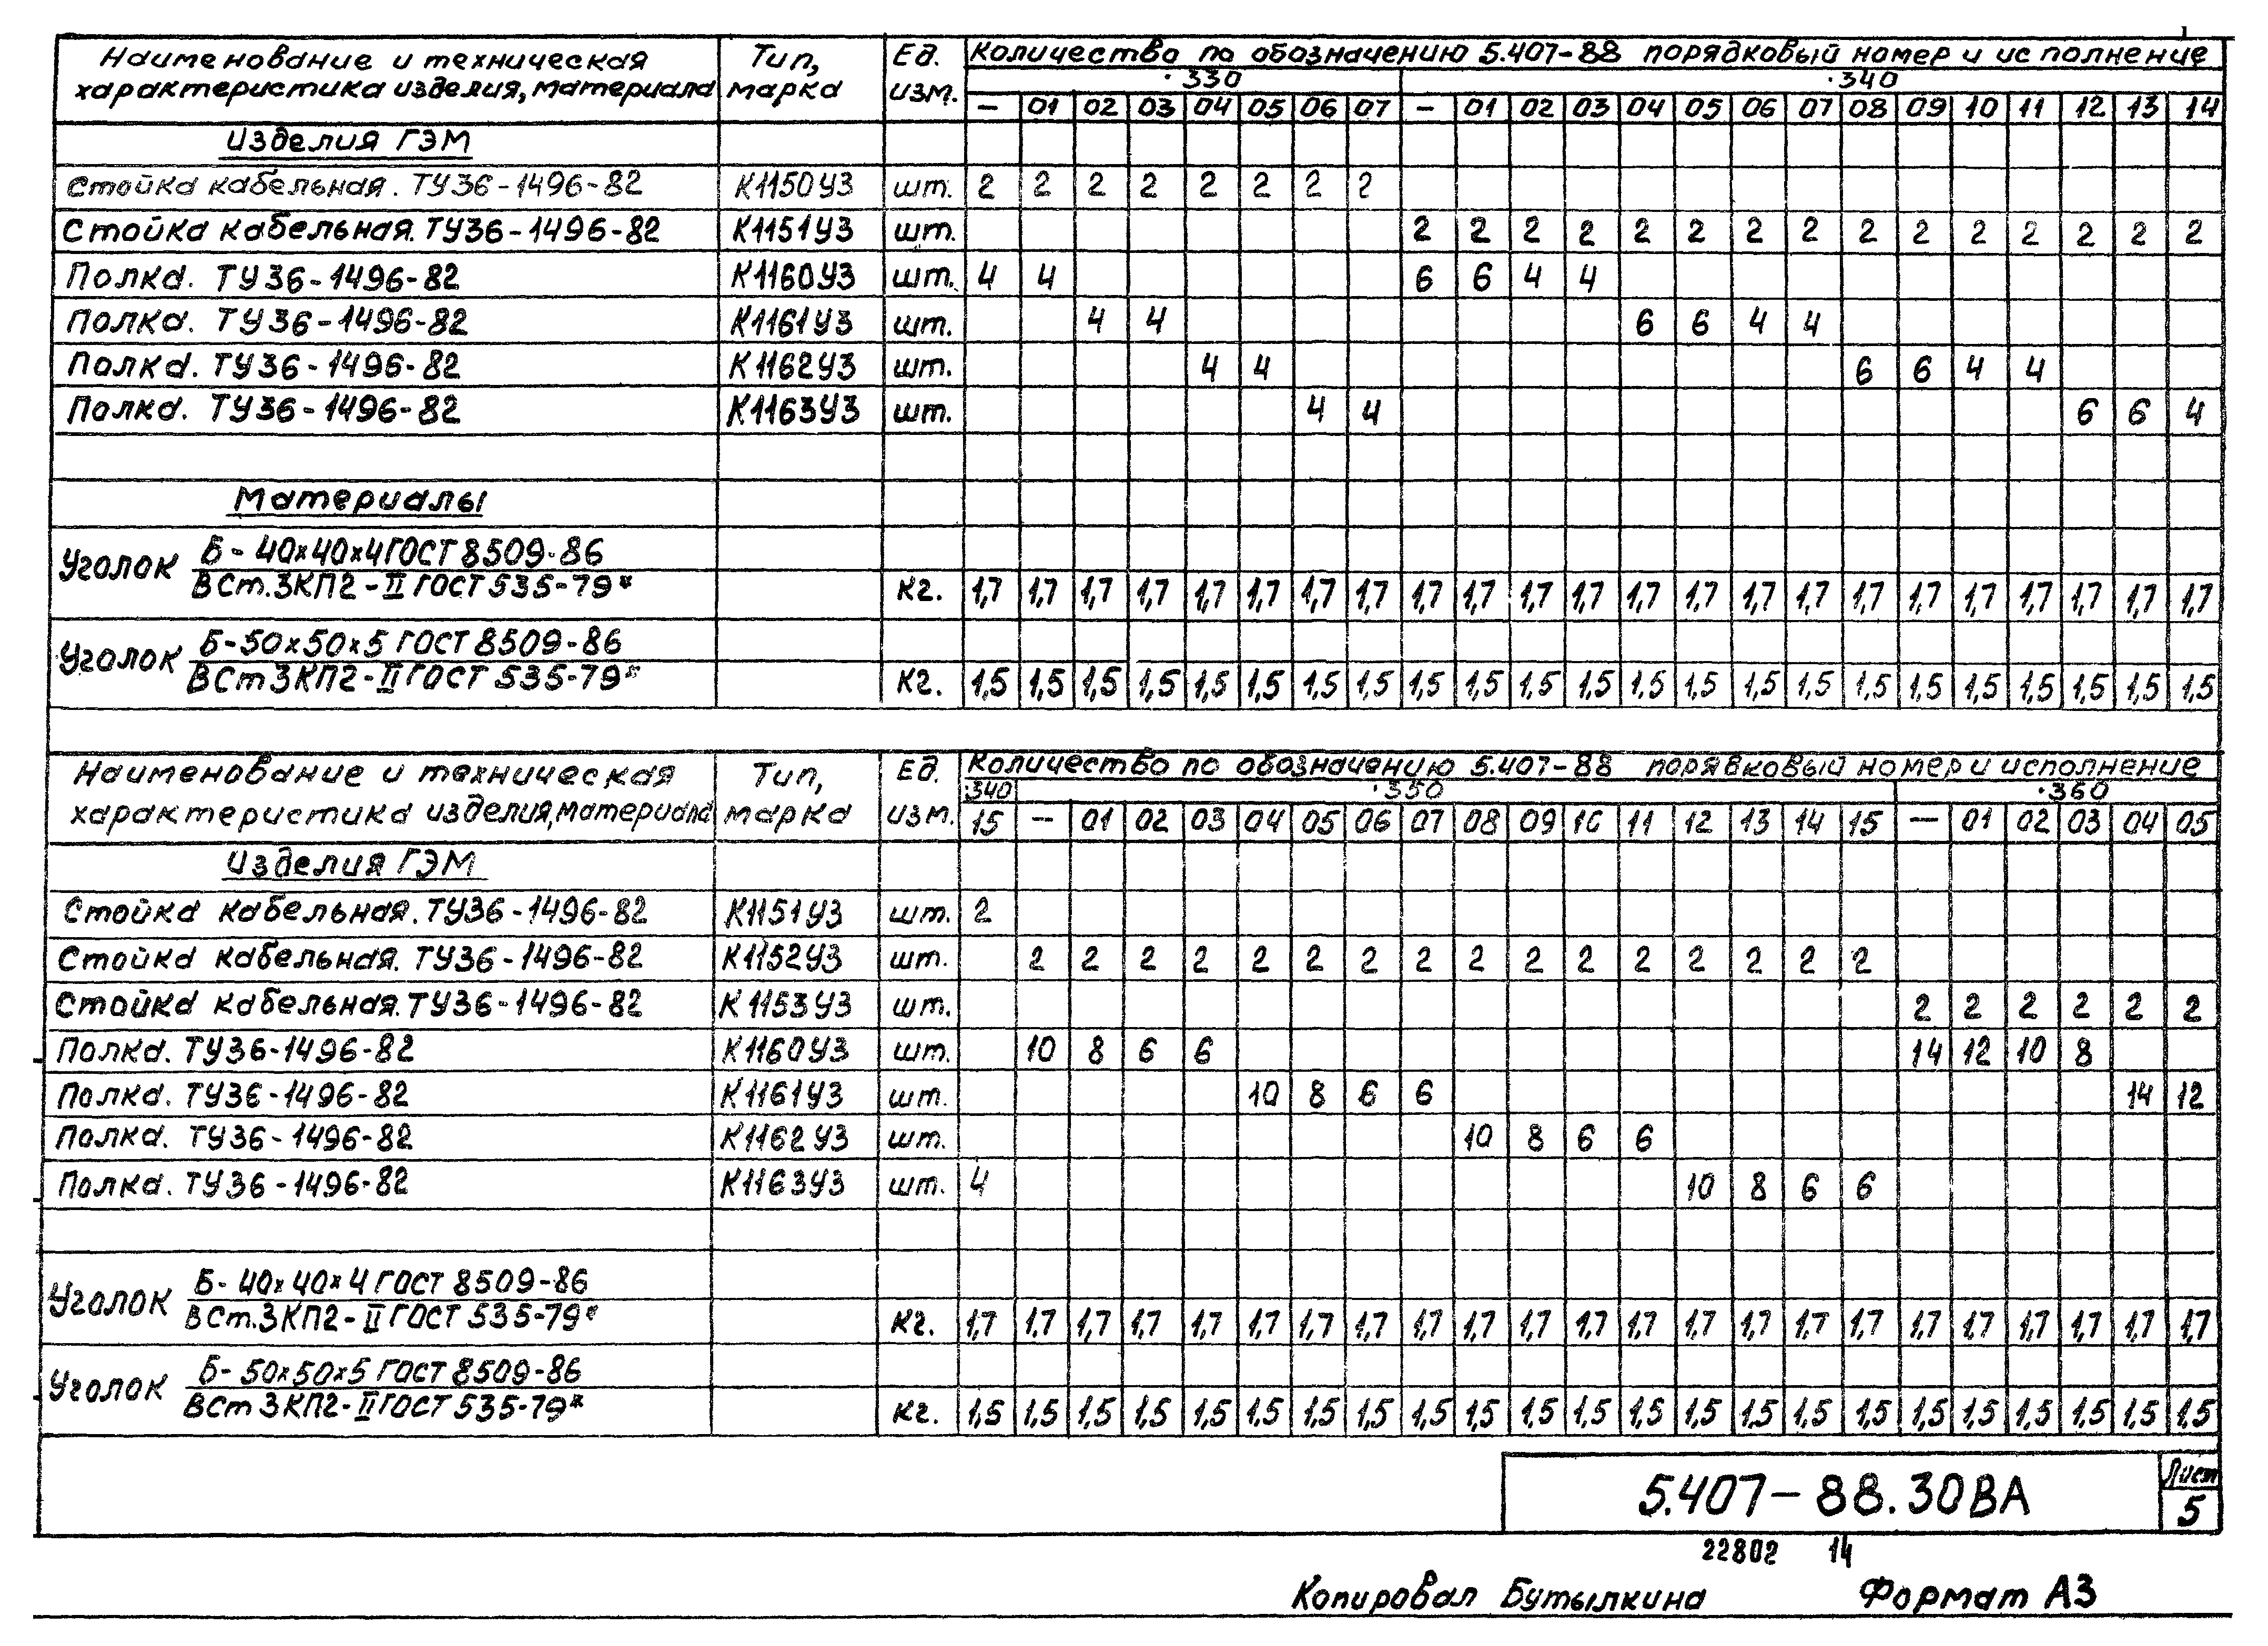 Наименование и техническая Тип, Ед. Количество по обозначению 5.407-88 порядковый номер и исполнение
характеристика изделия, материала марка изм. .330 .340
— 01 02 03 04 05 06 07 — 01 02 03 04 05 06 07 08 09 10 11 12 13 14
Изделия ГЭМ
Стойка кабельная. ТУ36-1496-82 К1150У3 шт. 2 2 2 2 2 2 2 2
Стойка кабельная. ТУ36-1496-82 К1151У3 шт. 2 2 2 2 2 2 2 2 2 2 2 2 2 2 2
Полка. ТУ36-1496-82 К1160У3 шт. 4 4 6 6 4 4
Полка. ТУ36-1496-82 К1161У3 шт. 4 4 6 6 4 4
Полка. ТУ36-1496-82 К1162У3 шт. 4 4 6 6 4 4
Полка. ТУ36-1496-82 К1163У3 шт. 4 4 6 6 4
Материалы
Уголок Б-40х40х4 ГОСТ 8509-86
ВСт.3КП2-II ГОСТ 535-79* кг. 1,7 1,7 1,7 1,7 1,7 1,7 1,7 1,7 1,7 1,7 1,7 1,7 1,7 1,7 1,7 1,7 1,7 1,7 1,7 1,7 1,7 1,7 1,7
Уголок Б-50х50х5 ГОСТ 8509-86
ВСт3КП2-II ГОСТ 535-79* кг. 1,5 1,5 1,5 1,5 1,5 1,5 1,5 1,5 1,5 1,5 1,5 1,5 1,5 1,5 1,5 1,5 1,5 1,5 1,5 1,5 1,5 1,5 1,5
Наименование и техническая Тип, Ед. Количество по обозначению 5.407-88 порядковый номер и исполнение
характеристика изделия, материала марка изм. .340 .350 .360
15 — 01 02 03 04 05 06 07 08 09 10 11 12 13 14 15 — 01 02 03 04 05
Изделия ГЭМ
Стойка кабельная. ТУ36-1496-82 К1151У3 шт. 2
Стойка кабельная. ТУ36-1496-82 К1152У3 шт. 2 2 2 2 2 2 2 2 2 2 2 2 2 2 2 2
Стойка кабельная. ТУ36-1496-82 К1153У3 шт. 2 2 2 2 2 2
Полка. ТУ36-1496-82 К1160У3 шт. 10 8 6 6 14 12 10 8
Полка. ТУ36-1496-82 К1161У3 шт. 10 8 6 6 14 12
Полка. ТУ36-1496-82 К1162У3 шт. 10 8 6 6
Полка. ТУ36-1496-82 К1163У3 шт. 4 10 8 6 6
Уголок Б-40х40х4 ГОСТ 8509-86
ВСт.3КП2-II ГОСТ 535-79* кг. 1,7 1,7 1,7 1,7 1,7 1,7 1,7 1,7 1,7 1,7 1,7 1,7 1,7 1,7 1,7 1,7 1,7 1,7 1,7 1,7 1,7 1,7 1,7
Уголок Б-50х50х5 ГОСТ 8509-86
ВСт3КП2-II ГОСТ 535-79* кг. 1,5 1,5 1,5 1,5 1,5 1,5 1,5 1,5 1,5 1,5 1,5 1,5 1,5 1,5 1,5 1,5 1,5 1,5 1,5 1,5 1,5 1,5 1,5
5.407-88.30ВА Лист
5
22802 14
Копировал Бутылкина Формат А3